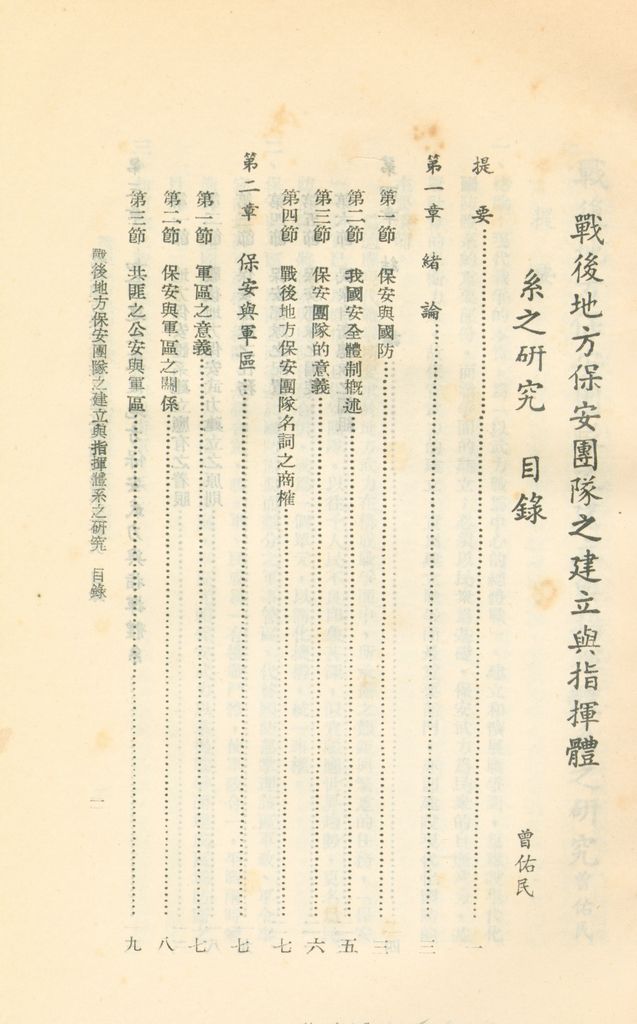 戰後地方保安團隊之建立與指揮體
系之研究　目錄
曾佑民
提　要……一
第一章　緒　論……三
第一節　保安與國防……三
第二節　我國安全體制概述……五
第三節　保安團隊的意義……六
第四節　戰後地方保安團隊名詞之商榷……七
第二章　保安與軍區……七
第一節　軍區之意義……七
第二節　保安與軍區之關係……八
第三節　共匪之公安與軍區……九
戰後地方保安團隊之建立與指揮體系之研究　目錄
一